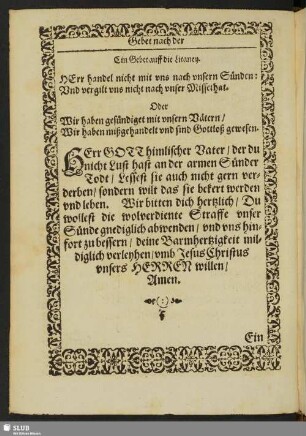 Gebet nach der
Ein Gebet auff die Litaney.
HErr handel nicht mit vns nach vnsern Sünden:
Vnd vergilt vns nicht nach vnser Missethat.
Oder
Wir haben gesündiget mit vnsern Vätern/
Wir haben mißgehandelt vnd sind Gottloß gewesen.
HErr GOTT himlischer Vater/ der du
nicht Lust hast an der armen Sünder
Todt/ Lessest sie auch nicht gern ver-
derben/ sondern wilt das sie bekert werden
vnd leben. Wir bitten dich hertzlich/ Du
wollest die wolverdiente Straffe vnser
Sünde gnediglich abwenden/ vnd vns hin-
fort zu bessern/ deine Barmhertzigkeit mil-
diglich verleyhen/ vmb Jesus Christus
vnsers HERREN willen/
Amen.
Ein
SLUB